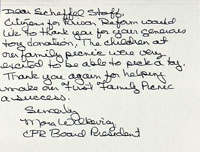 Dear Scheffel Staff,
Citizens for Prison Reform would
like to thank you for your generous
toy donation. The children at
our family picnic were very
excited to be able to pick a toy.
Thank you again for helping
make our First Family Picnic
a success.
Sincerely
CPR Board President